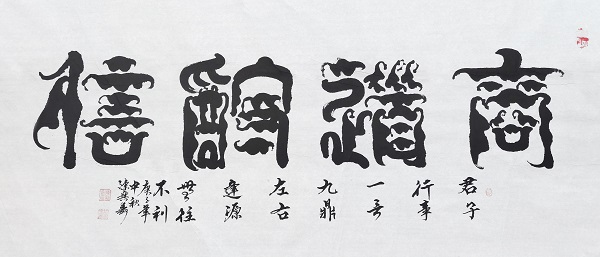 商道酬信
君子
行事
一言
九鼎
左右
逢源
無往
不利
庚子年
中秋